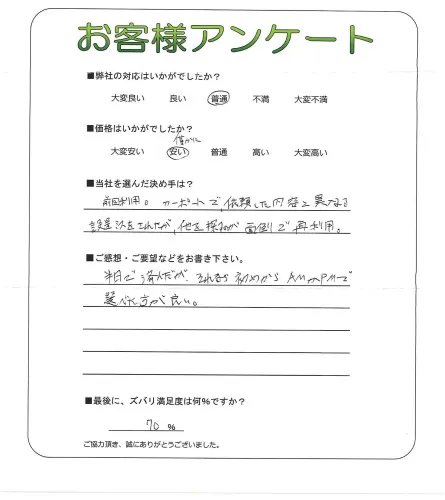 お客様アンケート
■弊社の対応はいかがでしたか？
大変良い 良い 普通 不満 大変不満
■価格はいかがでしたか？
僅かに
大変安い 安い 普通 高い 大変高い
■当社を選んだ決め手は？
前回利用。カーポートで、依頼した内容と異なる
設置をされたが、他を探すが面倒で再利用。
■ご感想・ご要望などをお書き下さい。
半日で済んだが、それなら初めからAMかPMで
選べた方が良い。
■最後に、ズバリ満足度は何％ですか？
70 %
ご協力頂き、誠にありがとうございました。